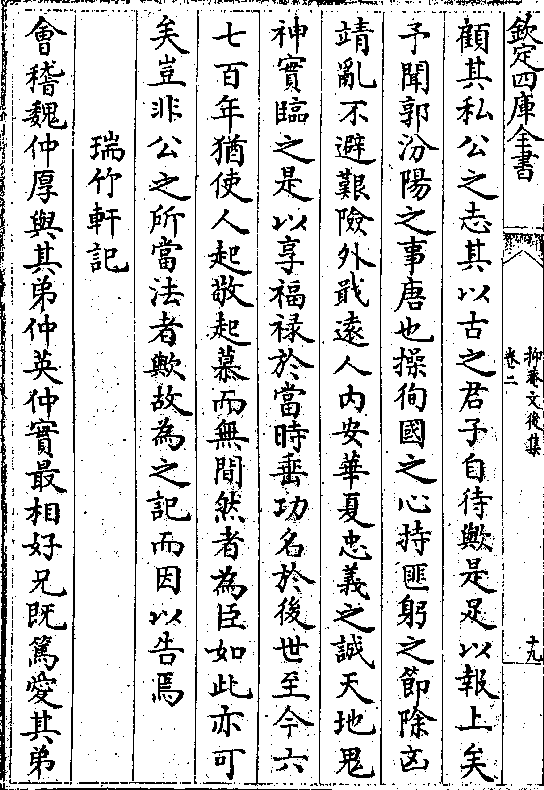 欽定四庫全書
抑菴文後集
卷二
十九
顧其私公之志其以古之君子自待歟是足以報上矣
予聞郭汾陽之事唐也操徇國之心持匪躬之節除凶
靖亂不避艱險外戢遠人内安華夏忠義之誠天地鬼
神實臨之是以享福禄於當時垂功名於後世至今六
七百年猶使人起敬起慕而無間然者為臣如此亦可
矣豈非公之所當法者歟故為之記而因以告焉
瑞竹軒記
會稽魏仲厚與其弟仲英仲實最相好兄既篤愛其弟